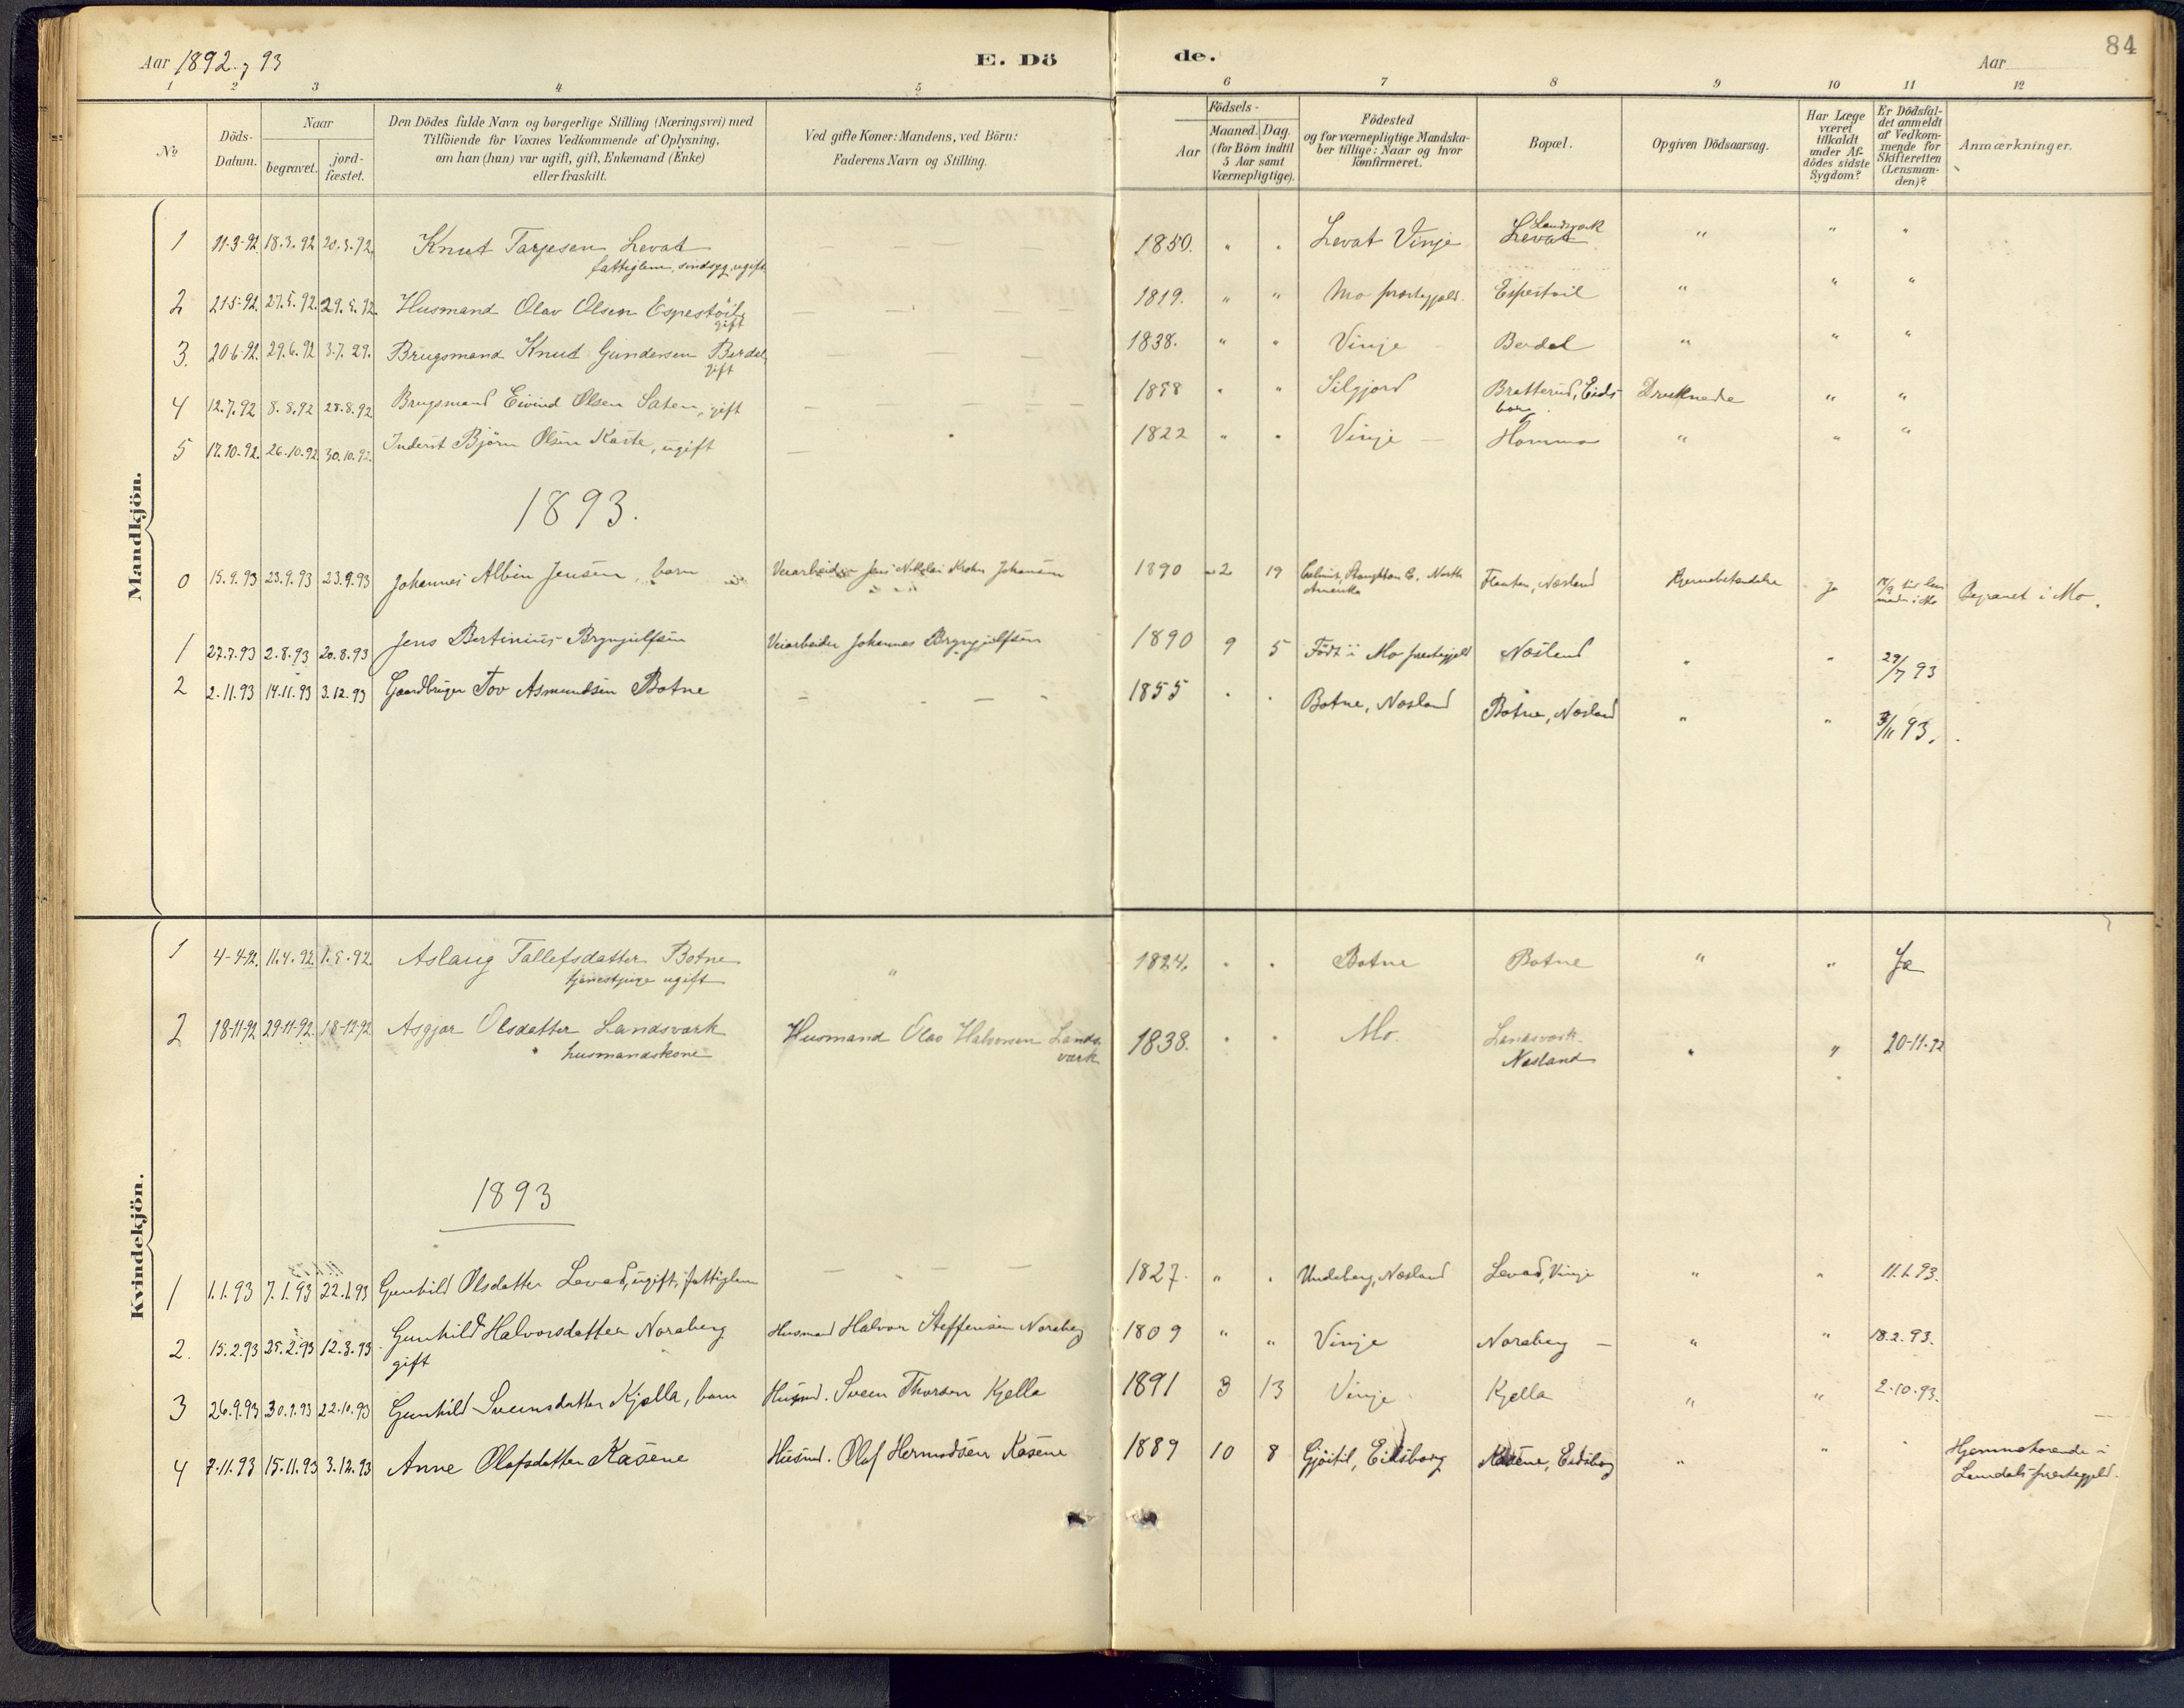 84
Aar 1892-93 E. Dö de. Aar
1 2 3 4 5 6 7 8 9 10 11 12
№ Döds-Datum. Naar begravet. jordfæstet. Den Dödes fulde Navn og borgerlige Stilling (Næringsvei) med Tilföiende for Voxnes Vedkommende af Oplysning, om han (hun) var ugift, gift, Enkemand (Enke) eller fraskilt. Ved gifte Koner: Mandens, ved Börn: Faderens Navn og Stilling. Aar Födsels- Maaned. Dag. (for Börn indtil 5 Aar samt Værnepligtige). Födested og for værnepligtige Mandskaber tillige: Naar og hvor konfirmeret. Bopæl. Opgiven Dödsaarsag. Har Læge været tilkaldt under Afdödes sidste Sygdom? Er Dödsfaldet anmeldt af Vedkommende for Skifteretten (Lensmanden)? Anmærkninger.
Mandkjön.
1 11-3-92 18.3.92 20.3.92 Knut Tarjesen Levat 1850. " " Levat Vinje Landsvark Levat " " "
fattiglem, sindsyg, ugift
2 21-5-92 27.5.92. 29.5.92. Husmand Olav Olsen Espestöil, 1819. " " Mo prestegjeld. Espestöil " " "
gift
3. 20-6-92 29.6.92 3.7.29. Brugsmand Knud Gundersen Berdal, 1838. " " Vinje Berdal " " "
gift
4 12.7.92 8.8.92 28.8.92 Brugsmand Eivind Olsen Saten, gift 1858 " " Silgjord Bratterud, Eidsborg Druknede " "
5 17.10-92. 26-10.92 30.10.92. Inderst Björn Olsen Kaste, ugift 1822 " " Vinje Homme " " "
1893.
0 15.9.93 23.9.93 23.9.93 Johannes Albin Jensen, barn Veiarbeider Jens Nikolai Krohn Johansen 1890 2 19 Stoughton C. North Amerika Flauten, Næsland Hjernebetændelse Ja Begravet i Mo.
1 27.7.93 2.8.93 20.8.93 Jens Bertinius Brynjulfsen Veiarbeider Johannes Brynjulfsen 1890 9 5 Födt i Mo prestegjeld Næsland " " 29/7 93
2 2.11.93 14.11.93 3.12.93 Gaardbruger Tov Asmundsen Botne 1855 " " Botne, Næsland Botne, Næsland " " 3/11 93.
Kvindekjön.
1 4-4-92. 11.4.92 1.5.92. Aslaug Tallefsdatter Botne " 1824. " " Botne Botne " " Ja
tjenestpige ugift
2 18-11-92 29-11-92. 18-12-92 Asgjær Olsdatter Landsvark Husmand Olav Halvorsen Landsvark 1838. " " Mo. Landsvark Næsland " " 20-11-92
husmandskone
1893
1 1.1.93 7.1.93 22.1.93 Gunhild Olsdatter Levad, ugift, fattiglem 1827. " " Undeberg, Næsland Levad, Vinje " " 11.1.93.
2. 15.2.93 25.2.93 12.3.93 Gunhild Halvorsdatter Noraberg Husmand Halvor Steffensen Noraberg 1809 " " Vinje Noraberg " " 18.2.93.
gift
3 26.9.93 30.9.93 22.10.93 Gunhild Sveinsdatter Kjella, barn Husmd. Svein Thorsen Kjella 1891 3 13 Vinje Kjella " " 2.10.93.
4 7.11.93 15.11.93 3.12.93 Anne Olafsdatter Kasene Husmd. Olaf Hermodsen Kasene 1889 10 8 Gjöitil, Eidsborg Kasene, Eidsborg " " " Hjemmehörende i
Laurdals prestegjeld.